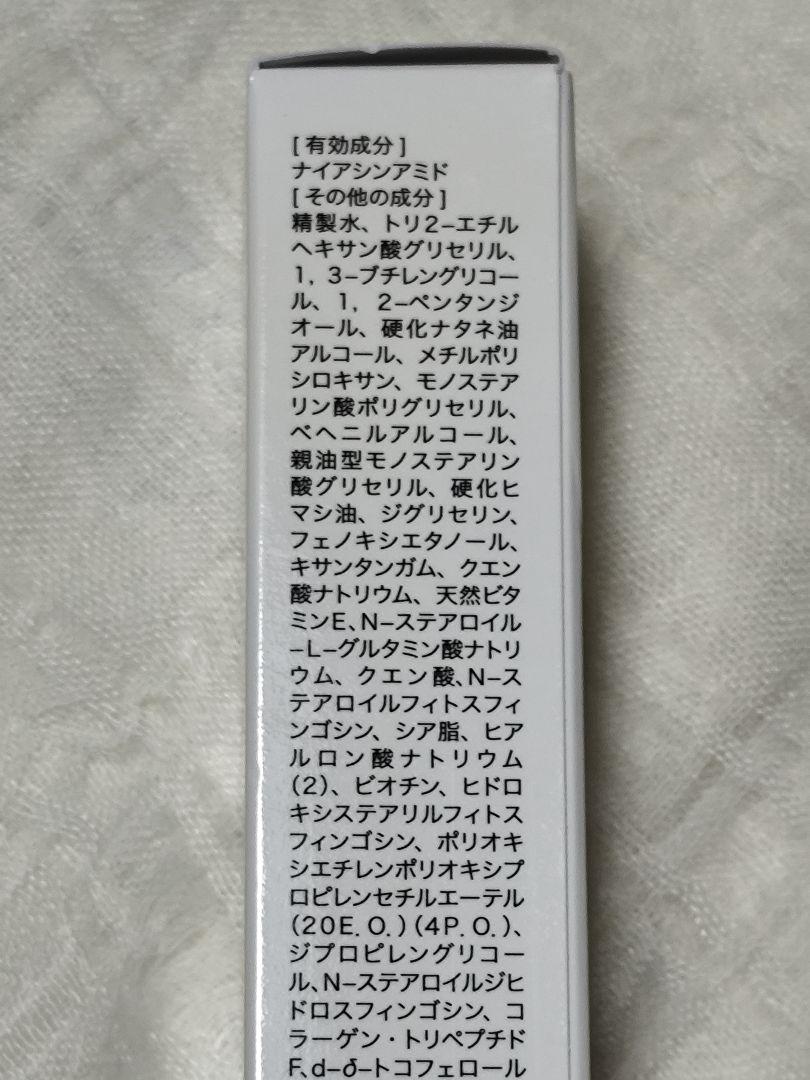 [有効成分]
ナイアシンアミド
[その他の成分]
精製水、トリ2−エチル
ヘキサン酸グリセリル、
1，3−ブチレングリコー
ル、1，2−ペンタンジ
オール、硬化ナタネ油
アルコール、メチルポリ
シロキサン、モノステア
リン酸ポリグリセリル、
ベヘニルアルコール、
親油型モノステアリン
酸グリセリル、硬化ヒ
マシ油、ジグリセリン、
フェノキシエタノール、
キサンタンガム、クエン
酸ナトリウム、天然ビタ
ミンE、N−ステアロイル
−L−グルタミン酸ナトリ
ウム、クエン酸、N−ス
テアロイルフィトスフィ
ンゴシン、シア脂、ヒア
ルロン酸ナトリウム
(2)、ビオチン、ヒドロ
キシステアリルフィトス
フィンゴシン、ポリオキ
シエチレンポリオキシプ
ロピレンセチルエーテル
(20E.O.)(4P.O.)、
ジプロピレングリコー
ル、N−ステアロイルジヒ
ドロスフィンゴシン、コ
ラーゲン・トリペプチド
F、d−δ−トコフェロール